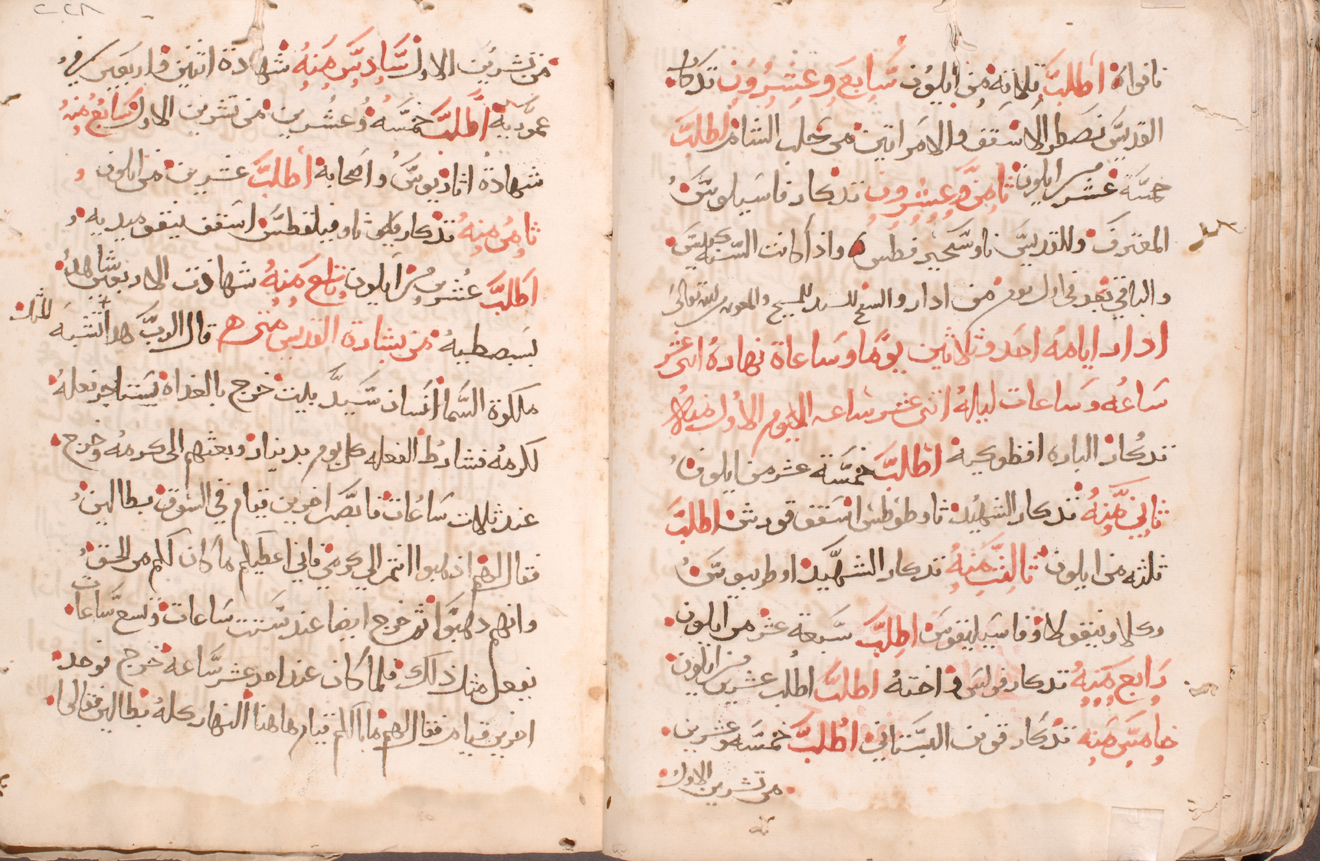 اطلب ثلاثه من ايلون سابع وعشرون تدكار
القديس الاسقف والامراتين من حلب الشام اطلب
خمسة عشر من ايلون ثامن وعشرون تدكار
المعترف وللقديس واذا كانت السنه كبيس
والباقي بعد في اول يوم من ادار والسبح للسيد المسيح
ادار ايامه احد وثلاثين يوما وساعاة نهاره اثنى عشر
ساعه وساعات ليله اثنى عشر ساعه اليوم الاول منه
تدكار الباره افظوكيه اطلب خمسة عشر من ايلون
ثاني منه تدكار الشهيد ثاوطوطس اسقف قورش اطلب
ثلثه من ايلون ثالث منه تدكار الشهيد اوطربيوس
اطلب سبعة عشر من ايلون
رابع منه تدكار فولس واخته اطلب اطلب عشرين من ايلون
خامس منه تدكار قونن البستاني اطلب خمسه وعشرين
من تشرين الاول
من تشرين الاول سادس منه شهادة اثنين واربعين في
عموريه اطلب خمسه وعشرين من تشرين الاول سابع منه
شهادة واصحابة اطلب عشرين من ايلون
ثامن منه تدكار اسقف نيقوميديه
اطلب عشرين من ايلون تاسع منه شهادت الاربعين شاهد
بسبصطيه من بشارة القديس متى قال الرب هدا المثل تشبه
ملكوة السما انسان سيد بيت خرج بالغداه يستاجر فعله
لكرمه فشارط الفعله كل يوم بدينار وبعثهم الى كرمه وخرج
عند ثلاث ساعات فابصر اخرين قيام في السوق بطالين
فقال لهم ادهبوا انتم الى كرمي فاني اعطيكم ما كان لكم من الحق
وانهم دهبوا ثم خرج ايضا عند ست ساعات وتسع ساعات
بفعل مثل ذلك فلما كان عند احد عشر ساعه خرج فوجد
اخرين قيام فقال لهم ما بالكم قيام هاهنا النهار كله بطالين فقالوا